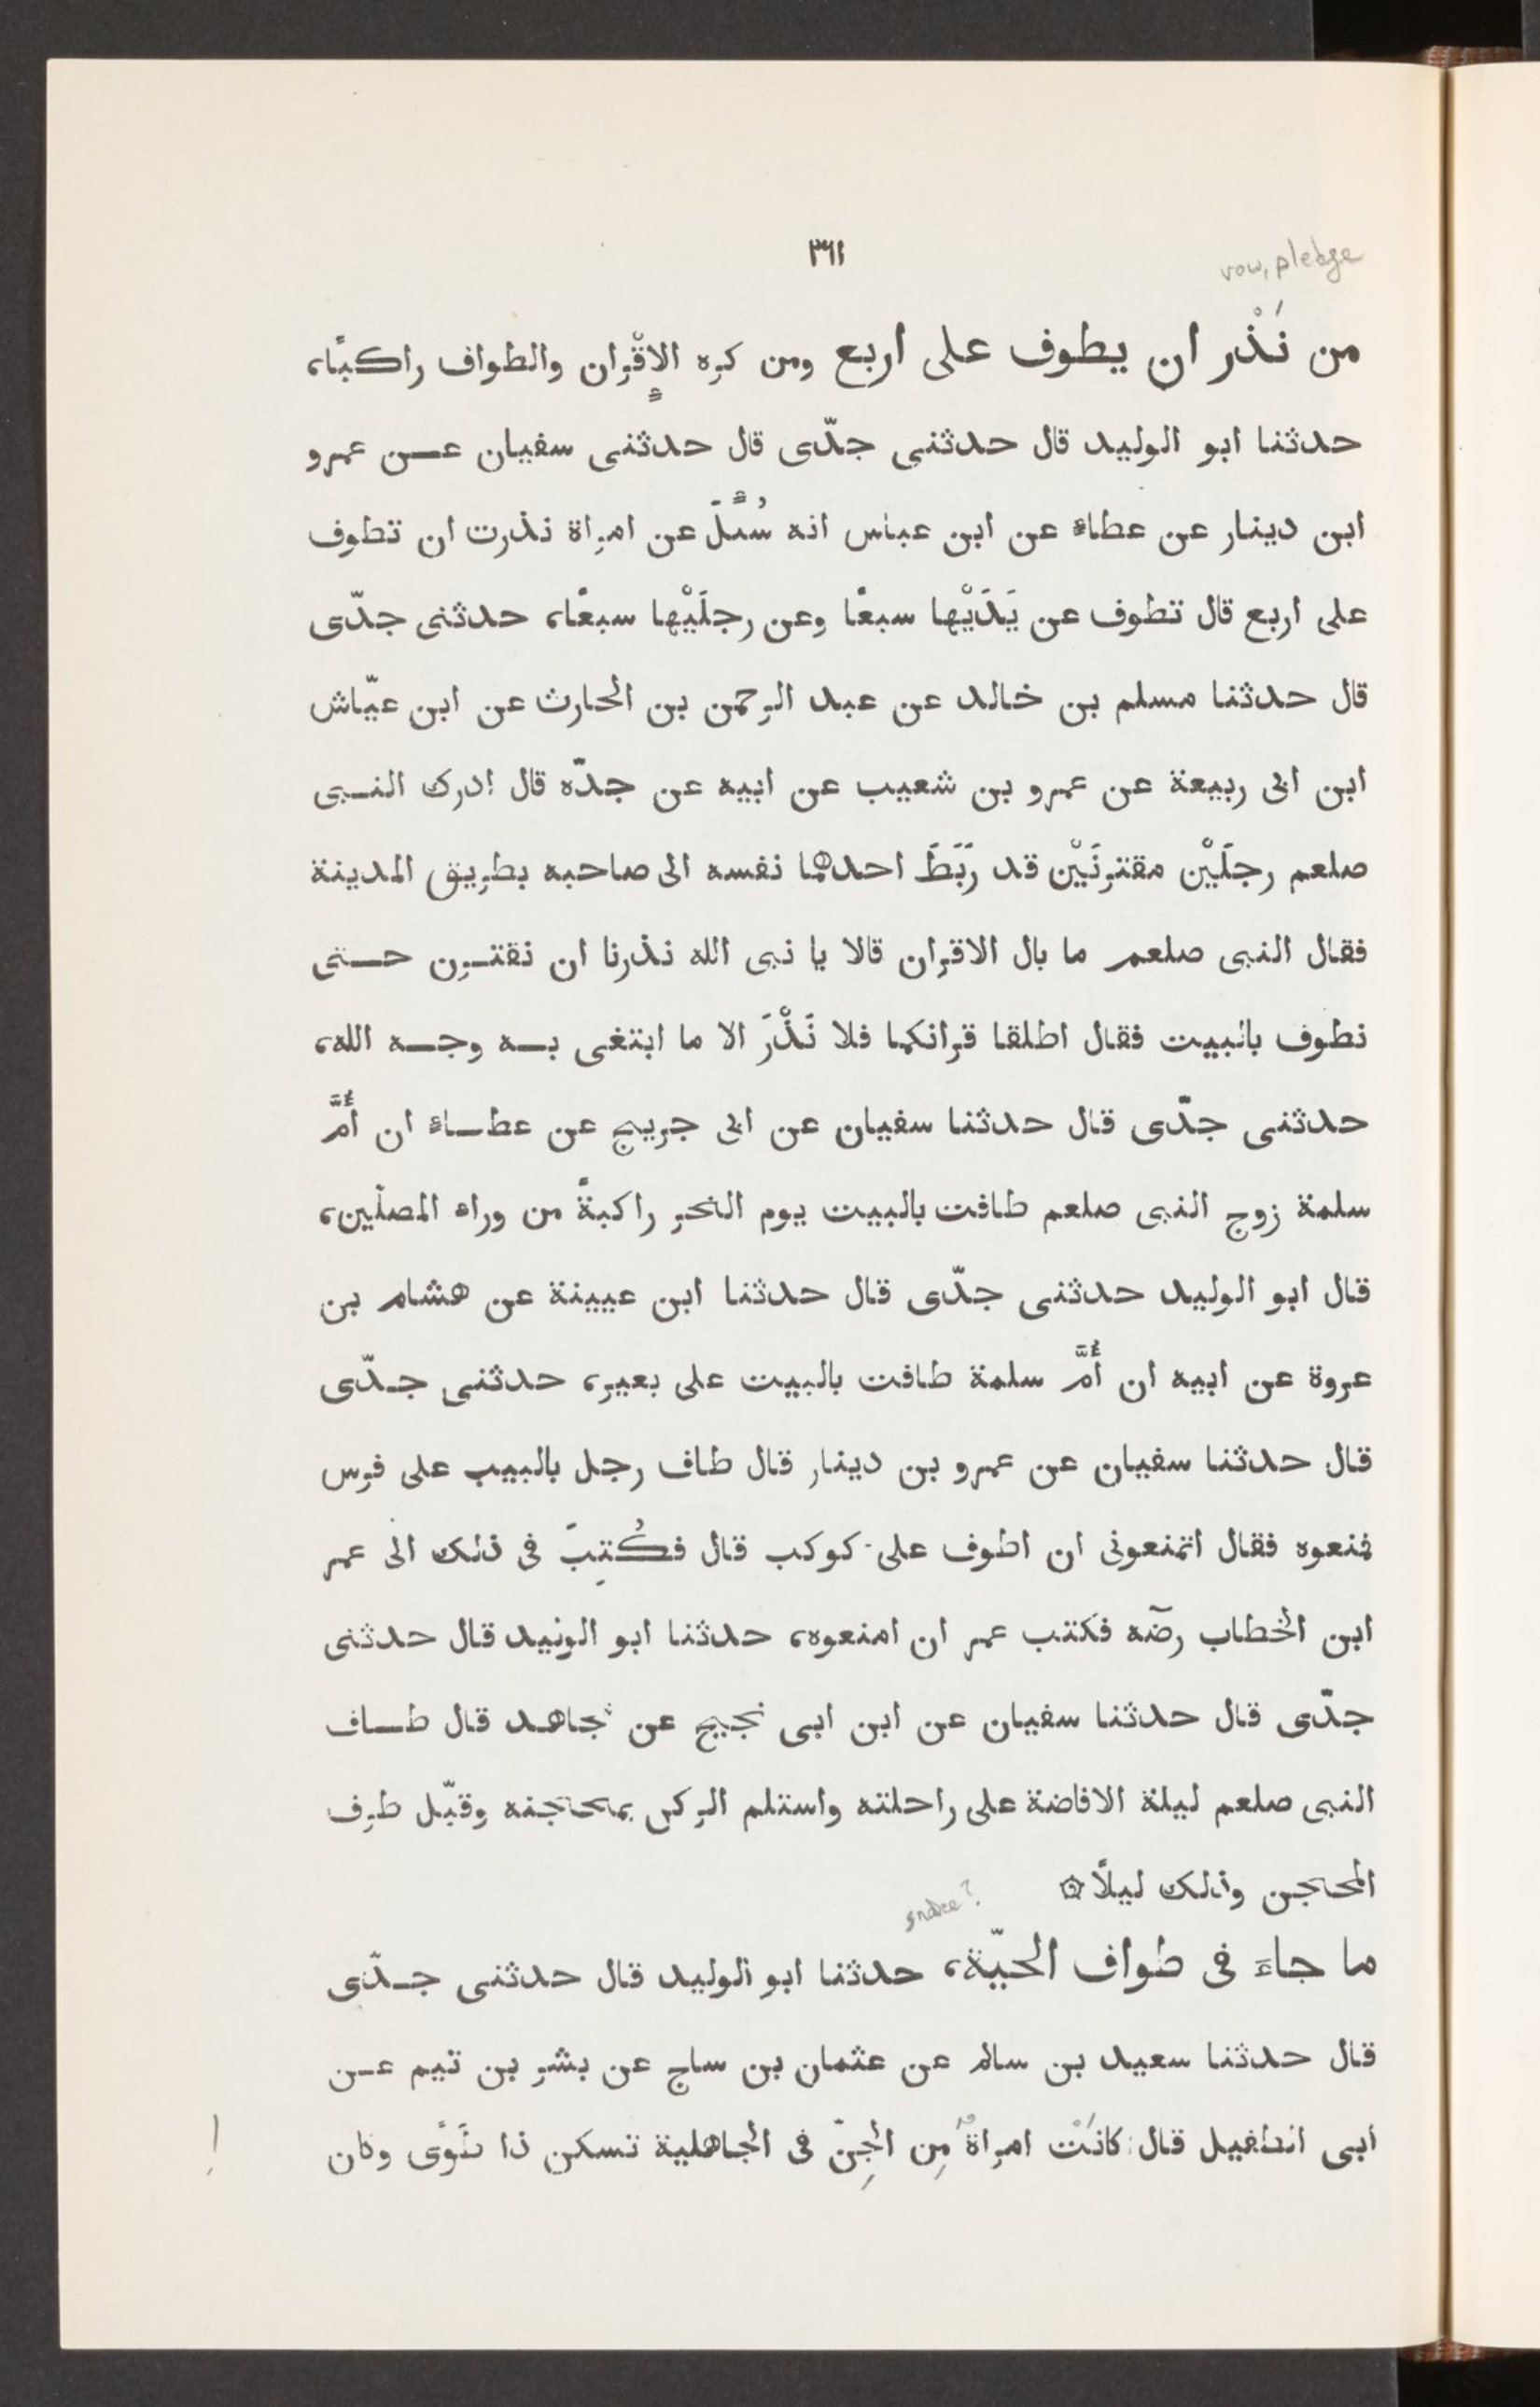 ٣٦١
vow, pledge
من نَذْر ان يطوف على اربع ومن كره الاِقْرِان والطواف راكبًا،
حدثنا ابو الوليد قال حدثنى جدّى قال حدثنى سفيان عن عمرو
ابن دينار عن عطاء عن ابن عباس انه سُئلَ عن امراة نذرت ان تطوف
على اربع قال تطوف عن يَدَيْها سبعًا وعن رجلَيْها سبعًا، حدثنى جدّى
قال حدثنا مسلم بن خالد عن عبد الرحمن بن الحارث عن ابن عيّاش
ابن ابى ربيعة عن عمرو بن شعيب عن ابيه عن جدّه قال ادرك النبى
صلعم رجلَيْن مقترنَيْن قد رَبَطَ احدهما نفسه الى صاحبه بطريق المدينة
فقال النبى صلعم ما بال الاقران قالا يا نبى الله نذرنا ان نقترن حتى
نطوف بالبيت فقال اطلقا قرانكما فلا نَذْرَ الا ما ابتغى به وجه الله،
حدثنى جدّى قال حدثنا سفيان عن ابى جريج عن عطاء ان أُمَّ
سلمة زوج النبى صلعم طافت بالبيت يوم النحر راكبةً من وراء المصلّين،
قال ابو الوليد حدثنى جدّى قال حدثنا ابن عيينة عن هشام بن
عروة عن ابيه ان أُمَّ سلمة طافت بالبيت على بعير، حدثنى جدّى
قال حدثنا سفيان عن عمرو بن دينار قال طاف رجل بالبيت على فرس
فمنعوه فقال اتمنعونى ان اطوف على كوكب قال فكُتِبَ فى ذلك الى عمر
ابن الخطاب رضّه فكتب عمر ان امنعوه، حدثنا ابو الوليد قال حدثنى
جدّى قال حدثنا سفيان عن ابن ابى نجيح عن مجاهد قال طاف
النبى صلعم ليلة الافاضة على راحلته واستلم الركن بمحجنه وقبّل طرف
المحجن وذلك ليلًا ۞
snake?
ما جاءَ فى طواف الحيّة، حدثنا ابو الوليد قال حدثنى جدّى
قال حدثنا سعيد بن سالم عن عثمان بن ساج عن بشر بن تيم عن
ابى الطفيل قال كانَتْ امراةٌ مِن الجِنّ فى الجاهلية تسكن ذا طُوًى وكان
!